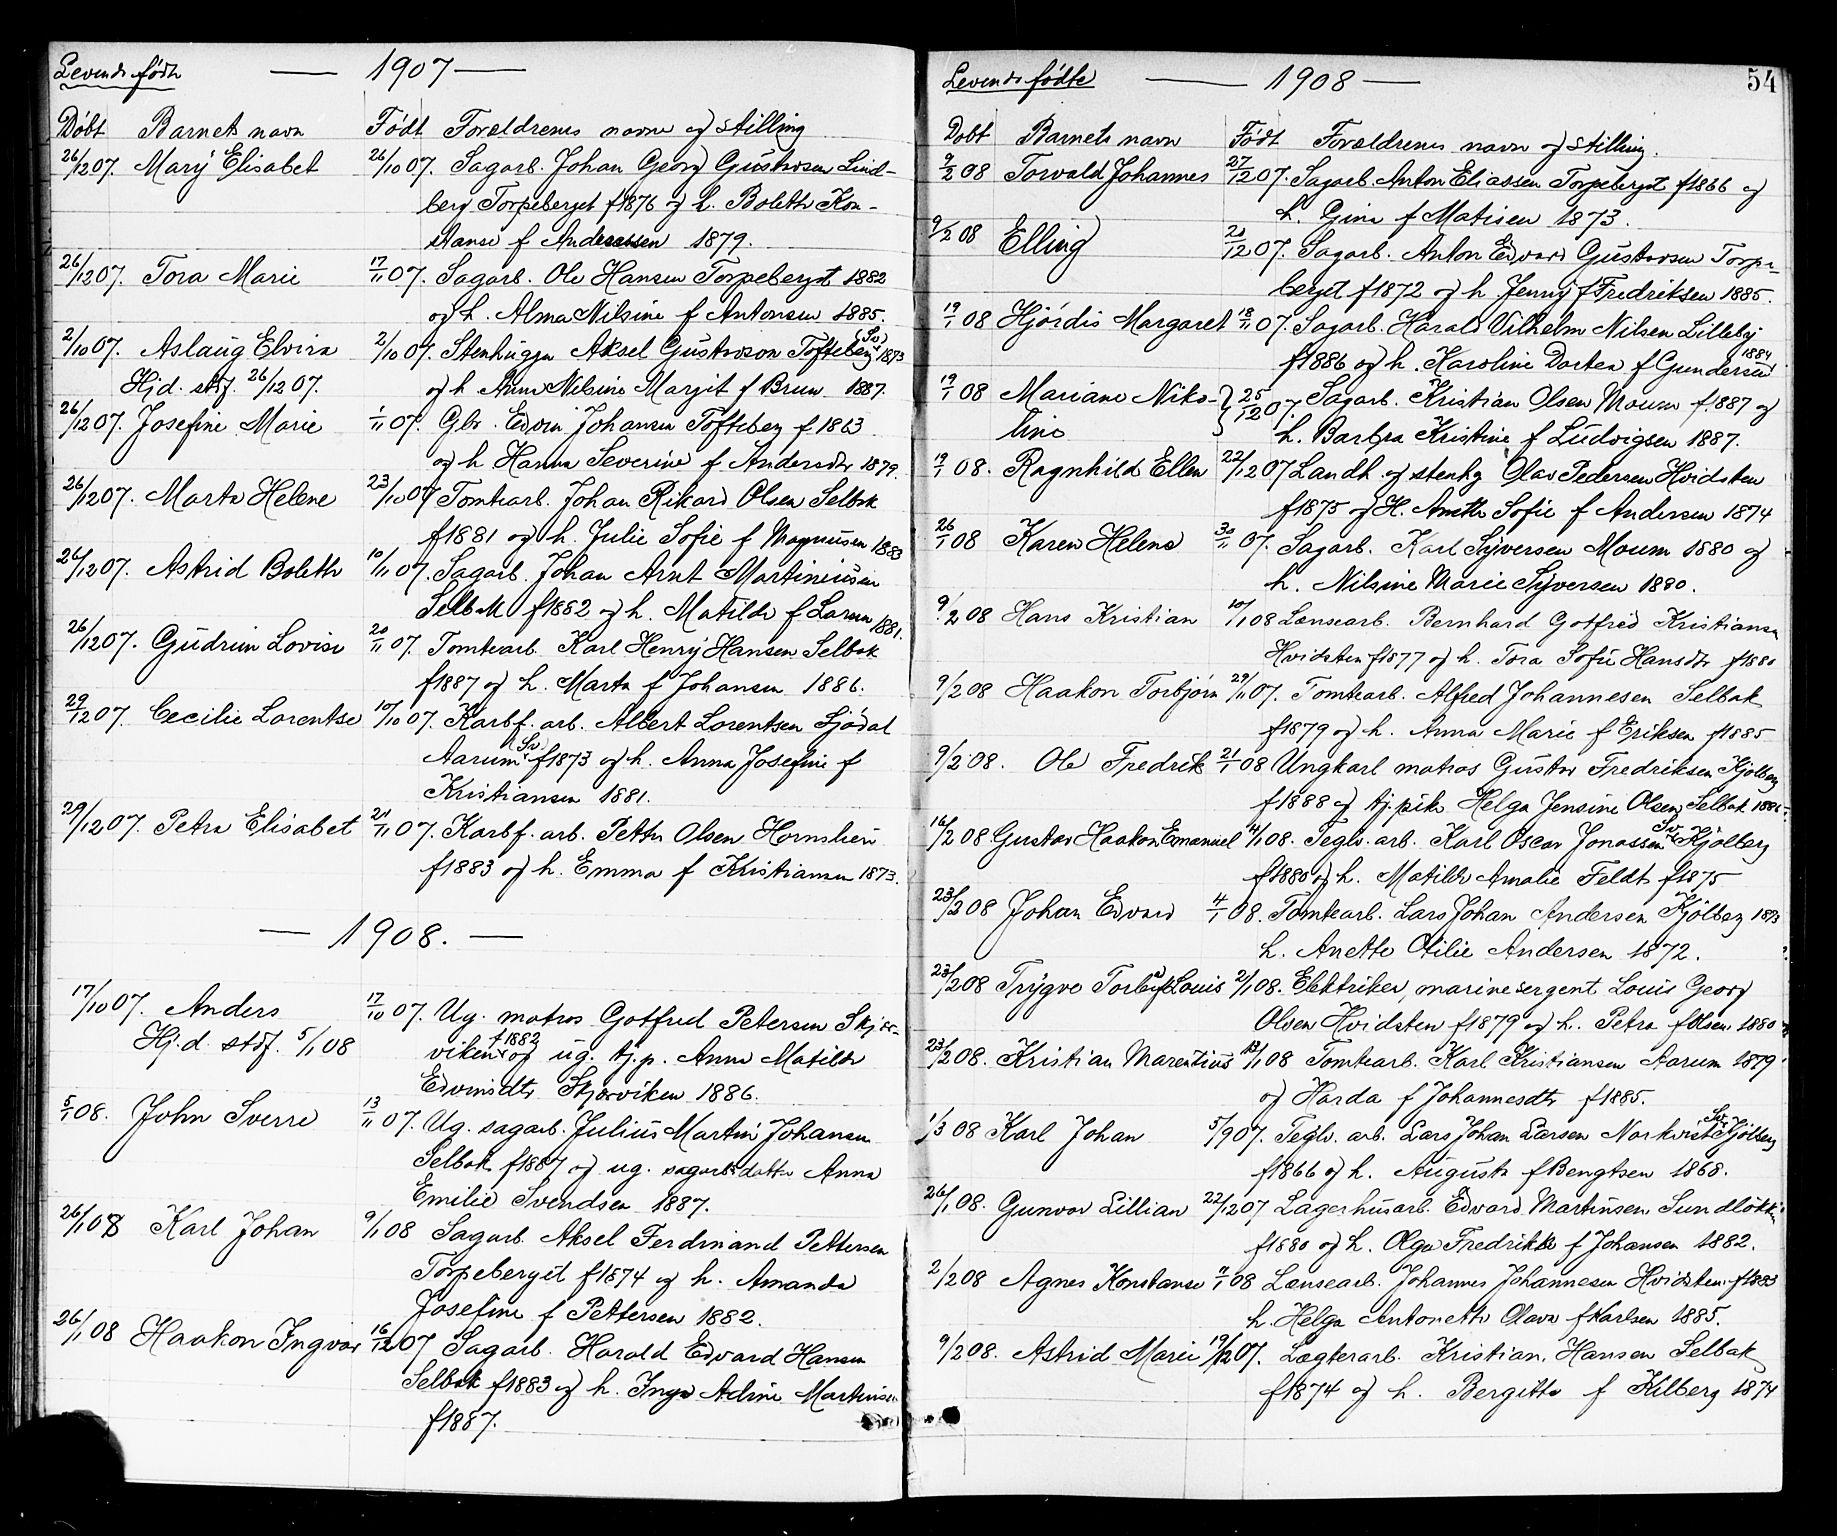 Levende fødte — 1907 —
Døbt Barnets navn Født Foreldrenes navne og stilling
26/12 07. Mary Elisabet 26/10 07. Sagarb. Johan Georg Gustavsen Lind-
berg Torpeberget f 1876 og h. Boleth Kon-
stanse f Andreassen 1879.
26/12 07. Tora Marie 17/11 07. Sagarb. Ole Hansen Torpeberget 1882
og h. Alma Nilsine f Antonsen 1885.
2/10 07. Aslaug Elvira 2/10 07. Stenhugger Aksel Gustavson Tofteberg (Sv.) 1873
Hjd. stdf. 26/12 07. og h Anna Nilsine Margit f Brun 1887.
26/12 07. Josefine Marie 1/11 07. Gbr. Edvin Johansen Tofteberg f 1863
og h Hanna Severine f Andersdtr 1879.
26/12 07. Marta Helene 23/10 07 Tomtearb. Johan Rikard Olsen Selbak
f 1881 og h. Julie Sofie f Magnusen 1883
26/12 07. Astrid Boleth 10/11 07. Sagarb. Johan Arnt Martiniusen
Selbak f 1882 og h. Matilde f Larsen 1881.
26/12 07. Gudrun Lovise 20/11 07. Tomtearb. Karl Henry Hansen Selbak
f 1887 og h. Marta f Johansen 1886.
29/12 07 Cecilie Lorentse 10/10 07. Karbf. arb. Albert Lorentsen Sjødal
Aarum (Sv.) f 1873 og h. Anna Josefine f
Kristiansen 1881.
29/12 07. Petra Elisabet 21/11 07. Karbf. arb. Petter Olsen Hornslien
f 1883 og h. Emma f Kristiansen 1873.
— 1908. —
17/10 07. Anders 17/10 07. Ug. matros Gotfred Petersen Skjær-
Hj.d. stdf. 5/1 08 viken f 1882 og ug. tj.p. Anna Matilde
Edvinsdtr Skjærviken 1886.
5/1 08. John Sverre 13/11 07. Ug. sagarb. Julius Martin Johansen
Selbak f 1887 og ug. sagarb. datter Anna
Emilie Svendsen 1887.
26/1 08 Karl Johan 9/1 08 Sagarb. Aksel Ferdinand Pettersen
Torpeberget f 1874 og h. Amanda
Josefine f Pettersen 1882.
26/1 08 Haakon Ingvar 16/12 07 Sagarb. Harald Edvard Hansen
Selbak f 1883 og h. Inga Adine Martinsen
f 1887.
Levende fødte — 1908 — 54
Døbt Barnets navn Født Foreldrenes navn og stilling.
9/2 08 Torvald Johannes 27/12 07. Sagarb. Anton Eliassen Torpeberget f 1866 og
h. Gina f Matisen 1873.
9/2 08 Elling 20/12 07. Sagarb. Anton Edvard Gustavsen Torpe-
berget f 1872 og h Jenny f Fredriksen 1885.
19/1 08 Hjørdis Margaret 18/11 07. Sagarb. Harald Vilhelm Nilsen Lilleby
f 1886 og h. Karoline Dortea f Gundersen 1884
19/1 08 Mariane Niko- 25/12 07. Sagarb. Kristian Olsen Moum f 1887 og
line h. Barbra Kristine f Ludvigsen 1887.
19/1 08. Ragnhild Ellen 22/12 07 Landh. og stenhg Olav Pedersen Hvidsten
f 1875 og H. Anette Sofie f Andersen 1874
26/1 08 Karen Helene 30/11 07. Sagarb. Karl Syversen Moum 1880 og
h. Nilsine Marie Syversen 1880.
9/2 08 Hans Kristian 10/1 08 Lænsearb. Bernhard Gotfred Kristiansen
Hvidsten f 1877 og h. Tora Sofie Hansdtr f 1880
9/2 08 Haakon Torbjørn 29/11 07. Tomtearb. Alfred Johannesen Selbak
f 1879 og h. Anna Marie f Eriksen f 1885
9/2 08. Ole Fredrik 21/1 08 Ungkarl matros Gustav Fredriksen Kjølberg
f 1888 og tj.pike Helga Jensine Olsen Selbak
16/2 08 Gustav Haakon Emanuel 4/1 08. Teglv. arb. Karl Oscar Jonassen (Sv.) Kjølberg
f 1880 og h. Matilde Amalie Feldt f 1875
23/2 08 Johan Edvard 4/1 08. Tomtearb. Lars Johan Andersen Kjølberg 1873
h. Anette Otilie Andersen 1872.
23/2 08 Trygve Louis 2/1 08. Elektriker, marinesergent Louis Georg
Olsen Hvidsten f 1879 og h. Petra f Olsen 1880
23/2 08. Kristian Marentius 13/1 08 Tomtearb. Karl Kristiansen Aarum 1879
og Harda f Johannesdtr f 1885.
1/3 08 Karl Johan 5/9 07. Teglv. arb. Lars Johan Larsen Norkvist (Sv.) Kjølberg
f 1866 og h. Augusta f Bengtsen 1868.
26/1 08. Gunvor Lillian 22/12 07 Lagerhusarb. Edvard Martinsen Sundløkken
f 1880 og h. Olga Fredrikke f Johansen 1882.
2/2 08 Agnes Konstanse 7/1 08 Lænsearb. Johannes Johannesen Hvidsten f 1883
h. Helga Antonette Olava f Karlsen 1885.
9/2 08. Astrid Marie 19/12 07. Lægterarb. Kristian Hansen Selbak
f 1874 og h. Bergitte f Kilberg 1874